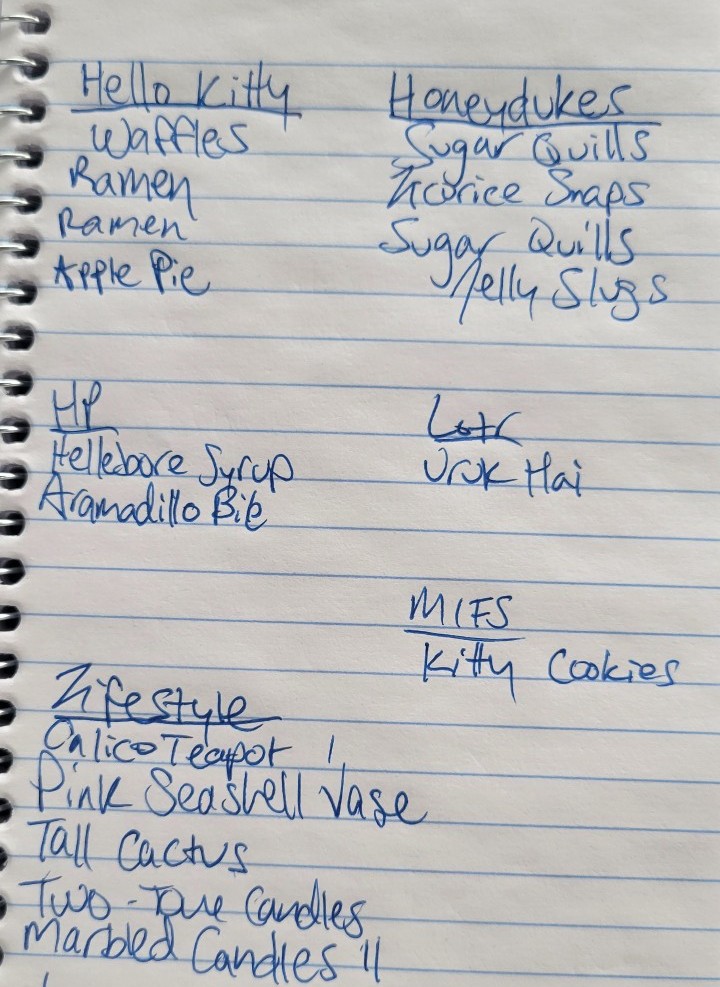 Hello Kitty
Waffles
Ramen
Ramen
Apple Pie
Honeydukes
Sugar Quills
Licorice Snaps
Sugar Quills
Jelly Slugs
HP
Hellebore Syrup
Aramadillo Bile
Lotr
Uruk Hai
MIFS
Kitty Cookies
Lifestyle
Calico Teapot |
Pink Seashell Vase
Tall Cactus
Two-Tone Candles
Marbled Candles ||